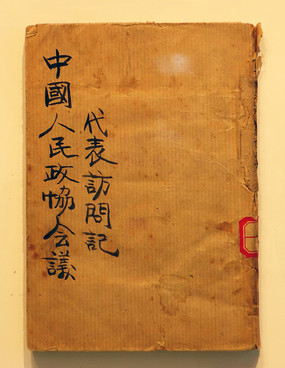 中國人民政協会議
代表訪問記